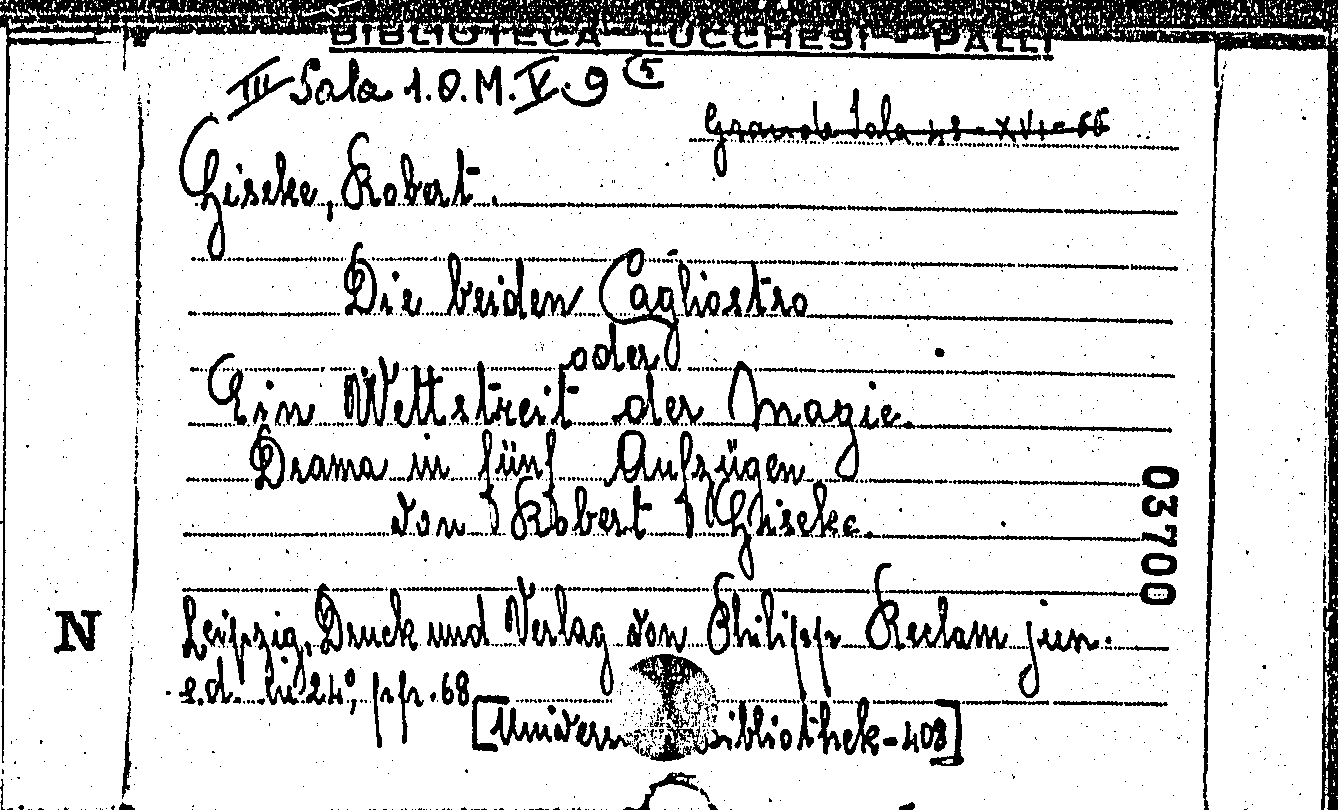 BIBLIOTECA LUCCHESI - PALLI
III Sala 1.O.M.V.9 (5
Grande Sala 48-XVI-66
Giseke, Robert.
Die beiden Cagliostro
oder
Ein Wettstreit der Magie.
Drama in fünf Aufzügen
von Robert Giseke.
03700
N
Leipzig, Druck und Verlag von Philipp Reclam jun.
s.d. in 24°, pp. 68
[Univers ibliothek-408]